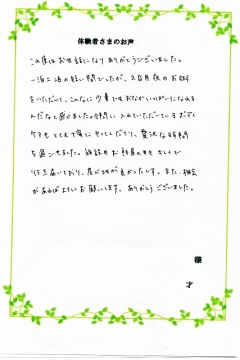 体験者さまのお声
この度はお世話になりありがとうございました。
一泊二日の短い間でしたが、2日目夜のお粥
をいただいて、こんなに少量でもおなかいっぱいになれる
んだなと感じました。合間に入れていただいている
ケアもとても丁寧にやって下さり、贅沢な時間
を過ごせました。施設もお部屋の中も
行き届いており、居心地が良かったです。また、機会
があればよろしくお願いします。ありがとうございました。
様
才